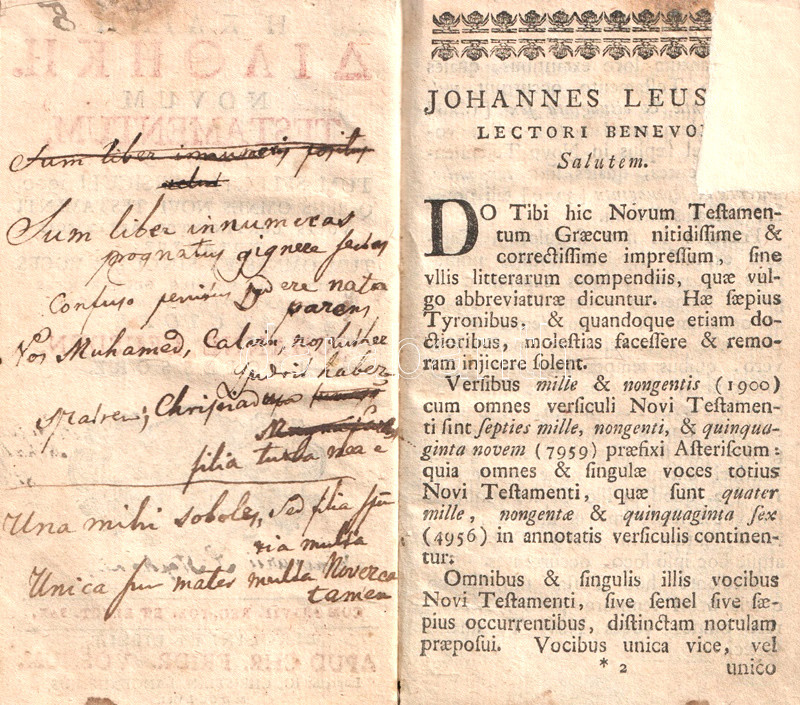 Sum liber innumeris positus
Sum liber innumeras
prognatus gignere sectas
Confuso penitus ordere nata
parens
Vos Muhamed, Calvin, nos Luther
habet
Matrem; Christiadum
filia turba mea e
Una mihi soboles, sed filia spu
ria multa
Unica sum mater multa Noverca
tamen
JOHANNES LEUS
LECTORI BENEVO
Salutem.
DO Tibi hic Novum Teſtamen-
tum Græcum nitidiſſime &
correctiſſime impreſſum, ſine
vllis litterarum compendiis, quæ vul-
go abbreviaturæ dicuntur. Hæ ſæpius
Tyronibus, & quandoque etiam do-
ctioribus, moleſtias faceſſere & remo-
ram injicere ſolent.
Verſibus mille & nongentis (1900)
cum omnes verſiculi Novi Teſtamen-
ti ſint ſepties mille, nongenti, & quinqua-
ginta novem (7959) præfixi Aſteriſcum:
quia omnes & ſingulæ voces totius
Novi Teſtamenti, quæ ſunt quater
mille, nongentæ & quinquaginta ſex
(4956) in annotatis verſiculis continen-
tur:
Omnibus & ſingulis illis vocibus
Novi Teſtamenti, ſive ſemel ſive ſæ-
pius occurrentibus, diſtinctam notulam
præpoſui. Vocibus unica vice, vel
* 2 unico